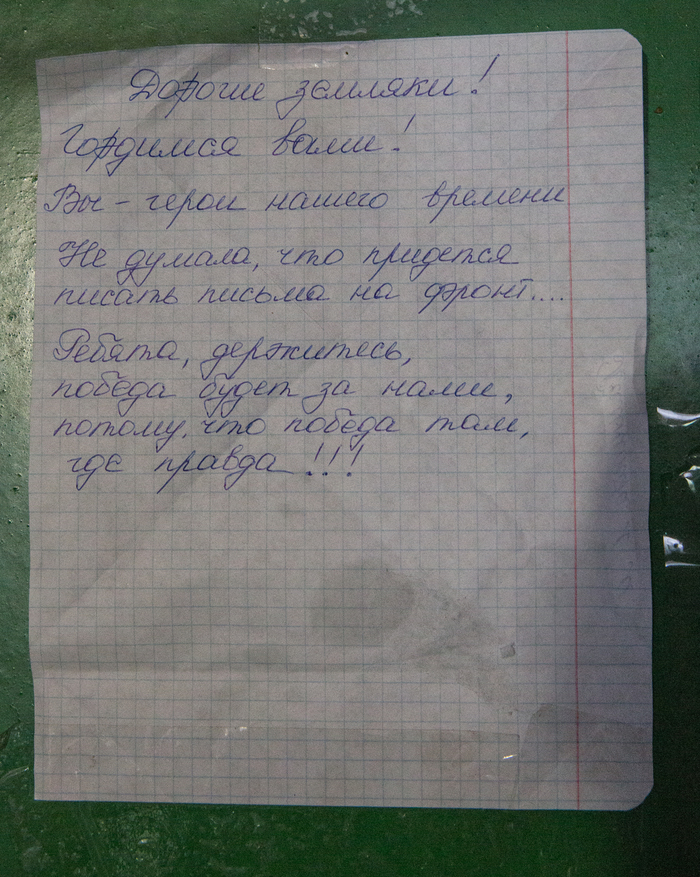 Дорогие земляки!
Гордимся вами!
Вы - герои нашего времени
Не думала, что придется
писать письма на фронт....
Ребята, держитесь,
победа будет за нами,
потому, что победа там,
где правда!!!